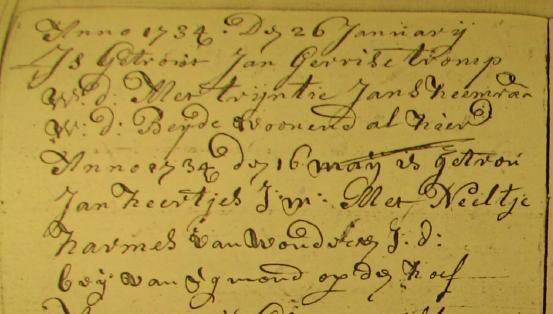 Anno 1734: Den 26 Januarij
Is Getrout Jan Gerritse tromp
w: d: Met trijntie Jans heemraa
w: d: Beyde woonend al hier
Anno 1734 den 16 maij is getrou
Jan heertjes J: m: Met Neeltje
harmes van wonderen J: d:
bey van Egmond op den hoef